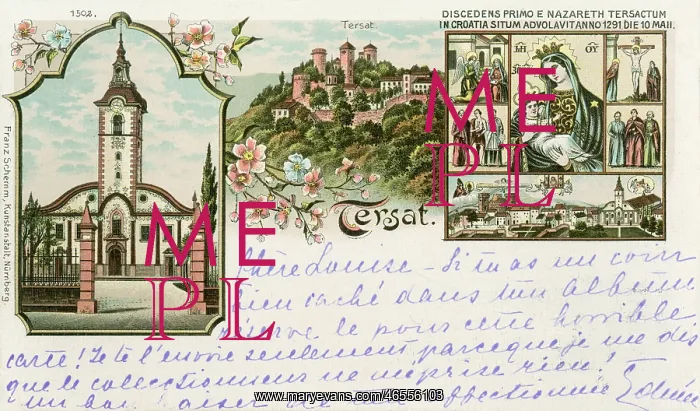 1502.
Tersat.
DISCEDENS PRIMO E NAZARETH TERSACTUM
IN CROATIA SITUM ADVOLAVIT ANNO 1291 DIE 10 MAII.
Franz Schemm, Kunstanstalt, Nürnberg.
ME
PL
ME
PL
Tersat.
Chère Louise - Si tu as un coin
bien caché dans ton album
réserve le pour cette horrible
carte! Je te l'envoie seulement parceque je me dis
que le collectionneur ne méprise rien!
un bon baiser de affectionnée
www.maryevans.com/46556103